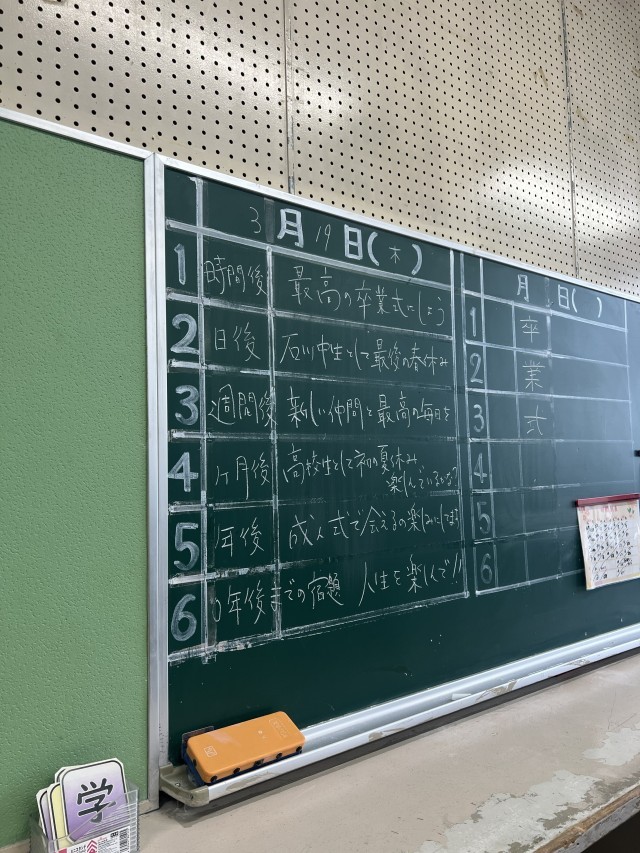 3月19日(木)
1 時間後 最高の卒業式にしよう
2 日後 石川中生として最後の春休み
3 週間後 新しい仲間と最高の毎日を
4 ヶ月後 高校生として初の夏休み
楽しんでいるかな?
5 年後 成人式で会えるの楽しみにしてます
6 0年後までの宿題 人生を楽しんで!!
月 日( )
1 卒
2 業
3 式
4
5
6
学